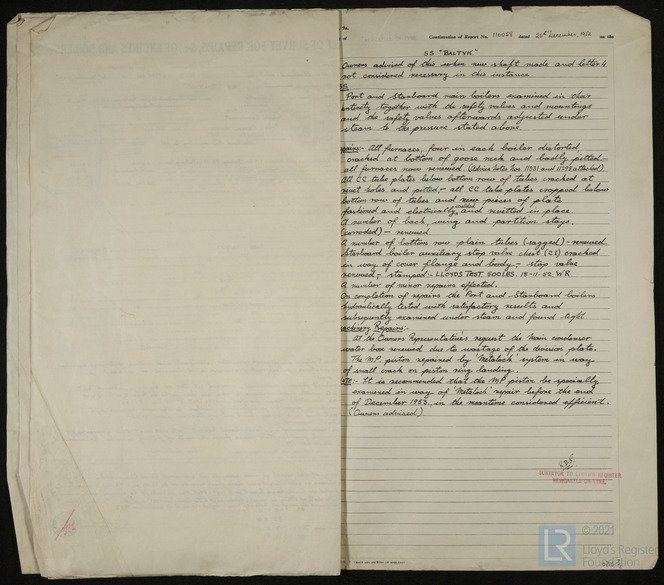 No.
of
Continuation of Report No. 110058 dated 20th December, 1952 on the
SS "BALTYK"
Owners advised of this when new shaft made and letter 4
not considered necessary in this instance.
Port and Starboard main boilers examined in their
entirety together with the safety valves and mountings
and the safety valves afterwards adjusted under
steam to the pressure stated above.
epairs:- All furnaces, four in each boiler distorted,
cracked at bottom of goose neck and badly pitted -
all furnaces now renewed. (Advice Notes Nos. 11331 and 11298 attached)
All CC tube plates below bottom row of tubes cracked at
rivet holes and pitted, - all CC tube plates cropped below
bottom row of tubes and new pieces of plate
fashioned and electrically welded and rivetted in place.
A number of back, wing and partition stays,
(corroded) - renewed.
A number of bottom row plain tubes (ragged) - renewed.
Starboard boiler auxiliary stop valve chest (CI) cracked
in way of cover flange and body - stop valve
renewed, stamped:- LLOYDS TEST. 500LBS. 18-11-52. W.R.
A number of minor repairs effected.
On completion of repairs the Port and Starboard boilers
hydraulically tested with satisfactory results and
subsequently examined under steam and found tight.
achinery Repairs:-
At the Owners Representative's request the Main condenser
water box renewed due to wastage of the division plate.
The M.P. piston repaired by 'Metalock' system in way
of small crack on piston ring landing.
ote:- It is recommended that the M.P. piston be specially
examined in way of 'Metalock' repair before the end
of December 1953, in the meantime considered efficient.
(Owners advised)
SURVEYOR TO LLOYD'S REGISTER,
NEWCASTLE-ON-TYNE.
© 2021
Lloyd's Register
Foundation
LR